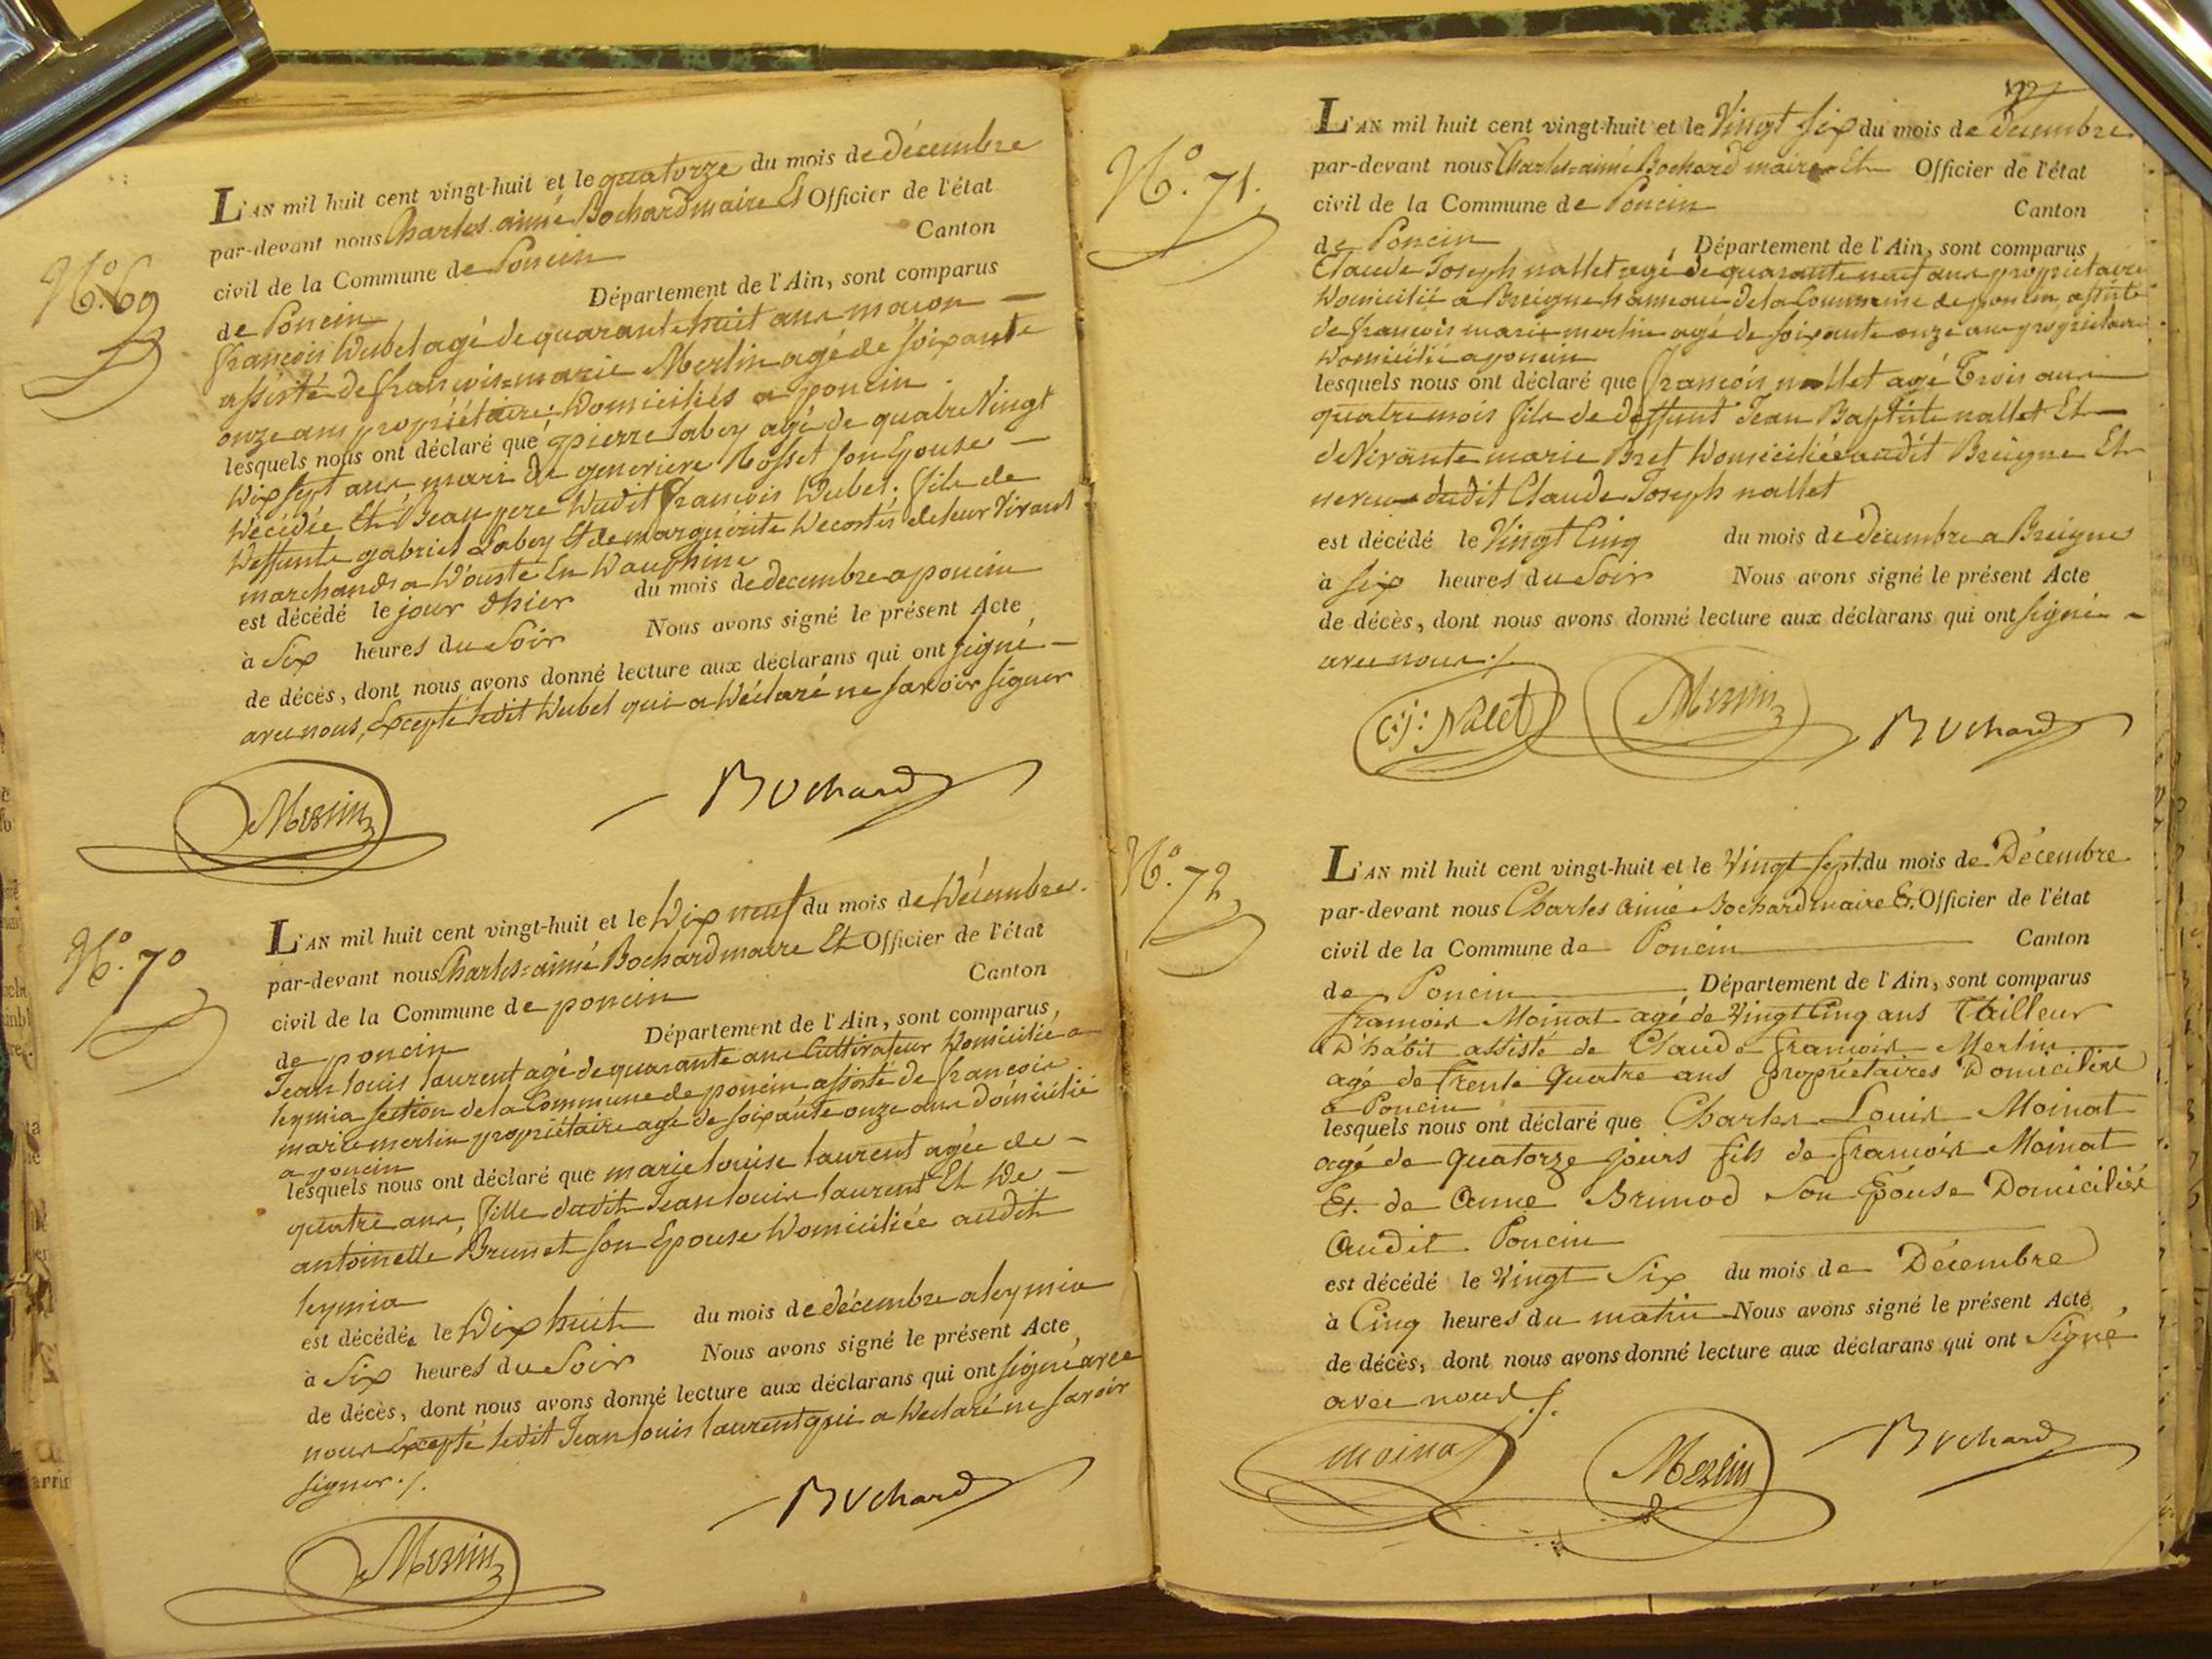 N.° 69
L'AN mil huit cent vingt-huit et le quatorze du mois de décembre
par-devant nous Charles aimé Bochard maire Et Officier de l'état
civil de la Commune de Poncin Canton
de Poncin Département de l'Ain, sont comparus
françois Dubel agé de quarante huit ans macon
assisté de françois=marie Merlin agé de soixante
onze ans propriétaire; Domiciliés a poncin
lesquels nous ont déclaré que pierre Labey agé de quatre Vingt
Dix sept ans mari de genevieve Rosset son Epouse
Décédée Et Beau pere Dudit françois Dubel; fils de
Deffunts gabriel Labey Et de marguérite Decostes de leur Vivant
marchands a D'aoste En Dauphine
est décédé le jour dhier du mois de decembre a poncin
à Six heures du Soir Nous avons signé le présent Acte
de décès, dont nous avons donné lecture aux déclarans qui ont signé
avec nous, Excepté ledit Dubel qui a Déclaré ne savoir signer
Merlin Bochard
N.° 70
L'AN mil huit cent vingt-huit et le Dix neuf du mois de Décembre
par-devant nous Charles=aimé Bochard maire Et Officier de l'état
civil de la Commune de poncin Canton
de poncin Département de l'Ain, sont comparus,
Jean louis laurent agé de quarante ans Cultivateur Domicilié a
leymia section de la Commune de poncin assisté de francois
marie merlin propriétaire agé de soixante onze ans Domicilié
a poncin
lesquels nous ont déclaré que marie louise laurent agée de
quatre ans, fille dudit Jean louis laurent Et De
antoinette Brunet son Epouse Domiciliée audit
leymia
est décédée le Dix huit du mois de décembre a leymia
à Six heures du Soir Nous avons signé le présent Acte
de décès, dont nous avons donné lecture aux déclarans qui ont signé avec
nous Excepté ledit Jean louis laurent qui a Declaré ne savoir
signer ./.
Merlin Bochard
N.° 71
L'AN mil huit cent vingt-huit et le Vingt six du mois de decembre
par-devant nous Charles=aimé Bochard maire Et Officier de l'état
civil de la Commune de Poncin Canton
de Poncin Département de l'Ain, sont comparus
Claude Joseph nallet agé de quarante neuf ans propriétaire
Domicilié a Breigne hameau de la Commune de poncin assisté
de françois marie merlin agé de soixante onze ans propriétaire
Domicilié a poncin
lesquels nous ont déclaré que françois nallet agé Trois ans
quatre mois fils de deffunt Jean Baptiste nallet Et
de Vivante marie Bret Domiciliée audit Breigne Et
neveu dudit Claude Joseph nallet
est décédé le Vingt Cinq du mois de decembre a Breigne
à six heures du Soir Nous avons signé le présent Acte
de décès, dont nous avons donné lecture aux déclarans qui ont signé
avec nous ./.
C: j: Nalet Merlin Bochard
N.° 72
L'AN mil huit cent vingt-huit et le Vingt sept du mois de Décembre
par-devant nous Charles Aimé Bochard maire Et. Officier de l'état
civil de la Commune de Poncin Canton
de Poncin Département de l'Ain, sont comparus
françois Moinat agé de Vingt Cinq ans Tailleur
D'hábit assisté de Claude françois Merlin
agé de Trente Quatre ans propriétaires Domiciliés
a Poncin
lesquels nous ont déclaré que Charles Louis Moinat
agé de Quatorze jours fils de françois Moinat
Et. de Anne Brunod Son Epouse Domiciliés
Audit Poncin
est décédé le Vingt Six du mois de Décembre
à Cinq heures du matin Nous avons signé le présent Acte
de décès, dont nous avons donné lecture aux déclarans qui ont Signé
avec nous ./.
moinat Merlin Bochard